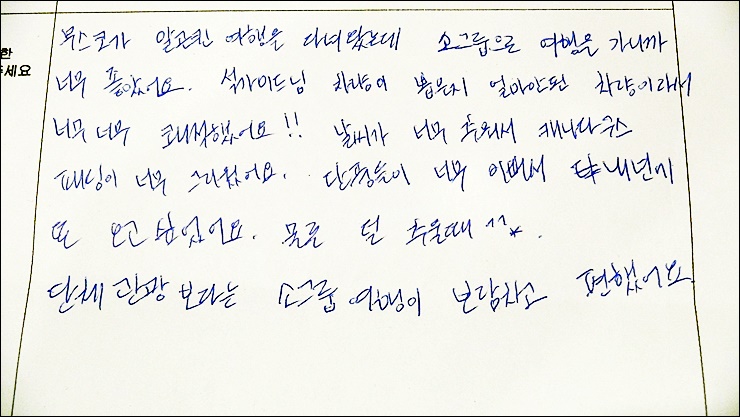 한
주세요
무스코가 알곤퀸 여행을 다녀왔는데 소그룹으로 여행을 가니까
너무 좋았어요. 석가이드님 차량이 뽑은지 얼마안된 차량이라서
너무 너무 쾌적했어요!! 날씨가 너무 추워서 캐나다구스
패딩이 너무 그리웠어요. 단풍들이 너무 이뻐서 내년에
또 오고 싶었어요. 물론 덜 추울때 ^^*.
단체관광 보다는 소그룹 여행이 보람차고 편했어요